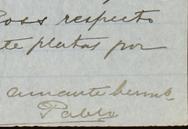 Ross respecto
te platas por
amante herm⁰
Pablo